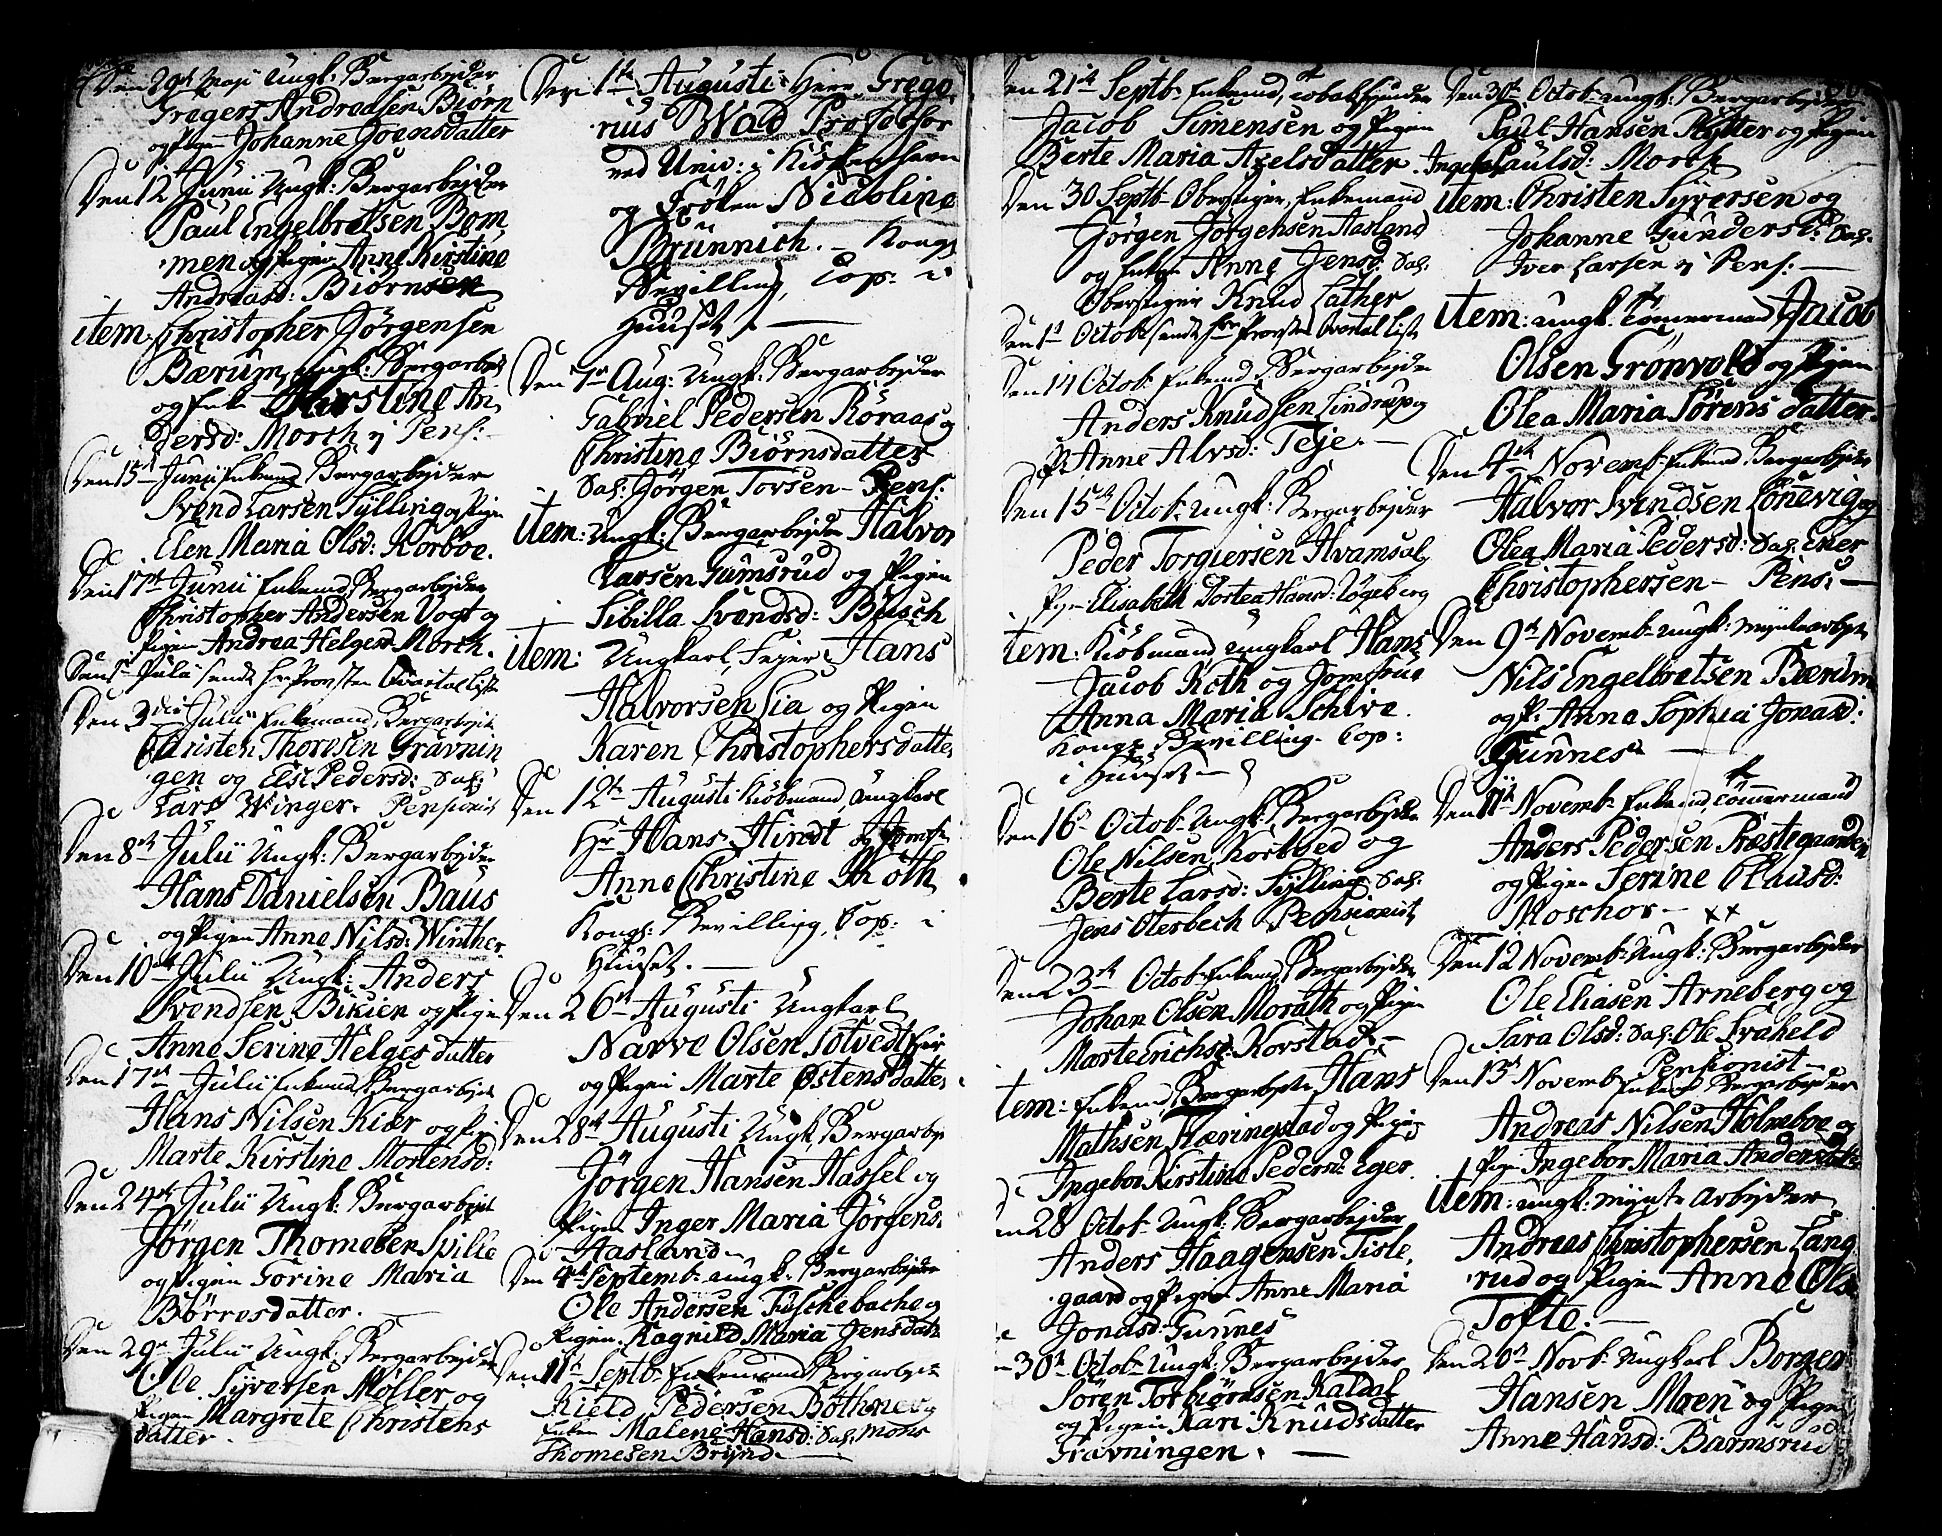 Den 29de Maji Ungk: Bergarbejder
Gregers Andreasen Biørn
og Pigen Johanne Joensdatter
Den 12 Junii Ungk: Bergarbejder
Paul Engelbretsen Bom
men og Pigen Anne Kirstine
Andreasd: Biørnsen
item: Christopher Jørgensen
Bærum, ungk: Bergarbej
og Enk Kirstine An
dersd: Morch
Den 15 Junii Enkemd Bergarbejder
Svend Larsen Sylling og Pigen
Elen Maria Olsd: Korboe.
Den 17de Junii Enkemd Bergarbejder
Christopher Andersen Vogt og
Pigen Andrea Helgesd: Morch.
Den 1 Julii sendt Hr Provsten Qvartal Liste
Den 3die Julii Enkemand, Bergarbejd
Christen Thoresen Gravnin
gen og Else Pedersd: Sal:
Lars Winger. Pensionist
Den 8de Julii Ungk: Bergarbejder
Hans Danielsen Baus
og Pigen Anne Nilsd: Winther.
Den 10de Julii Ungk: Anders
Svendsen Bikien og Pigen
Anne Serine Helgesdatter
Den 17de Julii Enkemd Bergarbejd
Hans Nilsen Kiær og Pig
Marte Kirstine Mortensd:
Den 24de Julii Ungk: Bergarbejd
Jørgen Thomesen Spille
og Pigen Gorine Maria
Børresdatter.
Den 29 Julii Ungk: Bergarbejder
Ole Syversen Møller og
Pigen Margrete Christens
datter.
Den 1te Augusti Herr Grego
rius Wad Professor
ved Univ: i Kiøbenhavn
og Frøken Nicoline
Brünnich. Kongs
Bevilling, Cop: i
Huuset.
Den 7de Aug: Ungk: Bergarbejder
Gabriel Pedersen Röraas og
Christine Biørnsdatter
Sal: Jörgen Torsen Pens:
item: Ungk: Bergarbejder Halvor
Larsen Gumsrud og Pigen
Sibilla Svendsd: Busch
item: Ungkarl, Fejer Hans
Halvorsen Lia og Pigen
Karen Christophersdatter
Den 12te Augusti Kiøbmand, Ungkarl
Hr Hans Hindt og Jomfr:
Anne Christine Roth
Kongs: Bevilling, Cop: i
Huuset.
Den 26de Augusti Ungkarl
Narve Olsen Solvedt
og Pigen Marte Østensdatter
Den 28de Augusti Ungk: Bergarbej
Jörgen Hansen Hassel og
Pigen Inger Maria Jörgens:
Aasland
Den 4de Septemb: ungk: Bergarbejder
Ole Andersen Tuschebache og
Pigen Ragnild Maria Jensdatr
Den 11te Septb: Enkemand Bergarbejder
Kield Pedersen Bothner og
Enken Malene Hansd: Sal: Mons
Thomesen Brynd
Den 21de Septb: Enkemd,
Jacob Simensen og Pigen
Berte Maria Axelsdatter.
Den 30 Septb: Oberstiger, Enkemand
Jörgen Jörgensen Aasland
og Enken Anne Jensd: Sal:
Oberstiger Knud Lather
Den 1 Octob: sendt Hr Provsten Qvartal Liste
Den 14 Octob: Enkemd Bergarbejder
Anders Knudsen Lindrup og
P: Anne Alvsd: Teje.
Den 15de Octob: ungk: Bergarbejder
Peder Torgiersen Hvamsal
Pigen Elisabeth Dortea Hansd: Løgeberg
item: Kiöbmand ungkarl Hans
Jacob Roth og Jomfrue
Anna Maria Schive.
Kongs Bevilling. Cop:
i Huuset
Den 16 Octob: Ungk: Bergarbejder
Ole Nilsen Korboed og
Berte Larsd: Sylling Sal:
Jens Oterbech Pensionist
Den 23de Octob: Enkemd Bergarbejder
Johan Olsen Morath og Pigen
Marte Erichsd: Korstad
item: Enkemd Bergarbejder Hans
Mathsen Kæringstad og Pigen
Ingebor Kirstine Pedersd: Eger.
Den 28 Octob: Ungk: Bergarbejder
Anders Haagensen Tisle
gaard og Pigen Anne Maria
Jonasd: Gunnes
Den 30te Octob: Ungk: Bergarbejder
Sören Torbiörnsen Kaldal
og Pigen Kari Knudsdatter
Gravningen.
Den 30te Octob: ungk: Bergarbejder
Paul Hansen Flytter og Pigen
Ingebor Paulsd: Morch
item: Christen Syversen og
Johanne Gundersd: Sal:
Iver Larsen Pens:
item: ungk: Tömermand Jacob
Olsen Grönvold og Pigen
Olea Maria Sörensdatter.
Den 4de Novemb: Enkemd Bergarbejder
Halvor Svendsen Lönnevig og
Olea Maria Pedersd: Sal: Iver
Christophersen Pens:
Den 9de Novemb: ungk: Myntearbejd
Nils Engelbretsen Bærum
og P: Anna Sophia Jonasd:
Gunnes
Den 11te Novemb: Enkemd, Tömmermand
Anders Pedersen Præstegaarden
og Pigen Serine Clausd:
Moschos xx
Den 12 Novemb: Ungk: Bergarbejder
Ole Eliasen Arneberg og
Sara Olsd: Sal: Ole Svaheld
Pensionist
Den 13de Novemb: Enkemd Bergarbejder
Andreas Nilsen Holneboe og
Pigen Ingebor Maria Andersdatr
item: ungk: Mynte Arbejder
Andreas Christophersen Lang
rud og Pigen Anne Ols
Tofte.
Den 20de Novb: Ungkarl Borger
Hansen Moen og Pigen
Anne Hansd: Barmsrud